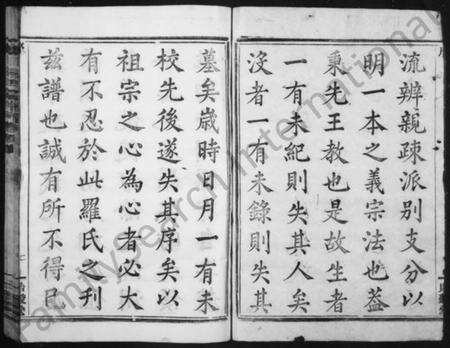 流辨親疎派別支分以
明一本之義宗法也蓋
秉先王教也是故生者
一有未紀則失其人矣
沒者一有未錄則失其
墓矣歲時日月一有未
校先後遂失其序矣以
祖宗之心為心者必大
有不忍於此羅氏之刊
茲譜也誠有所不得已
FamilySearch International